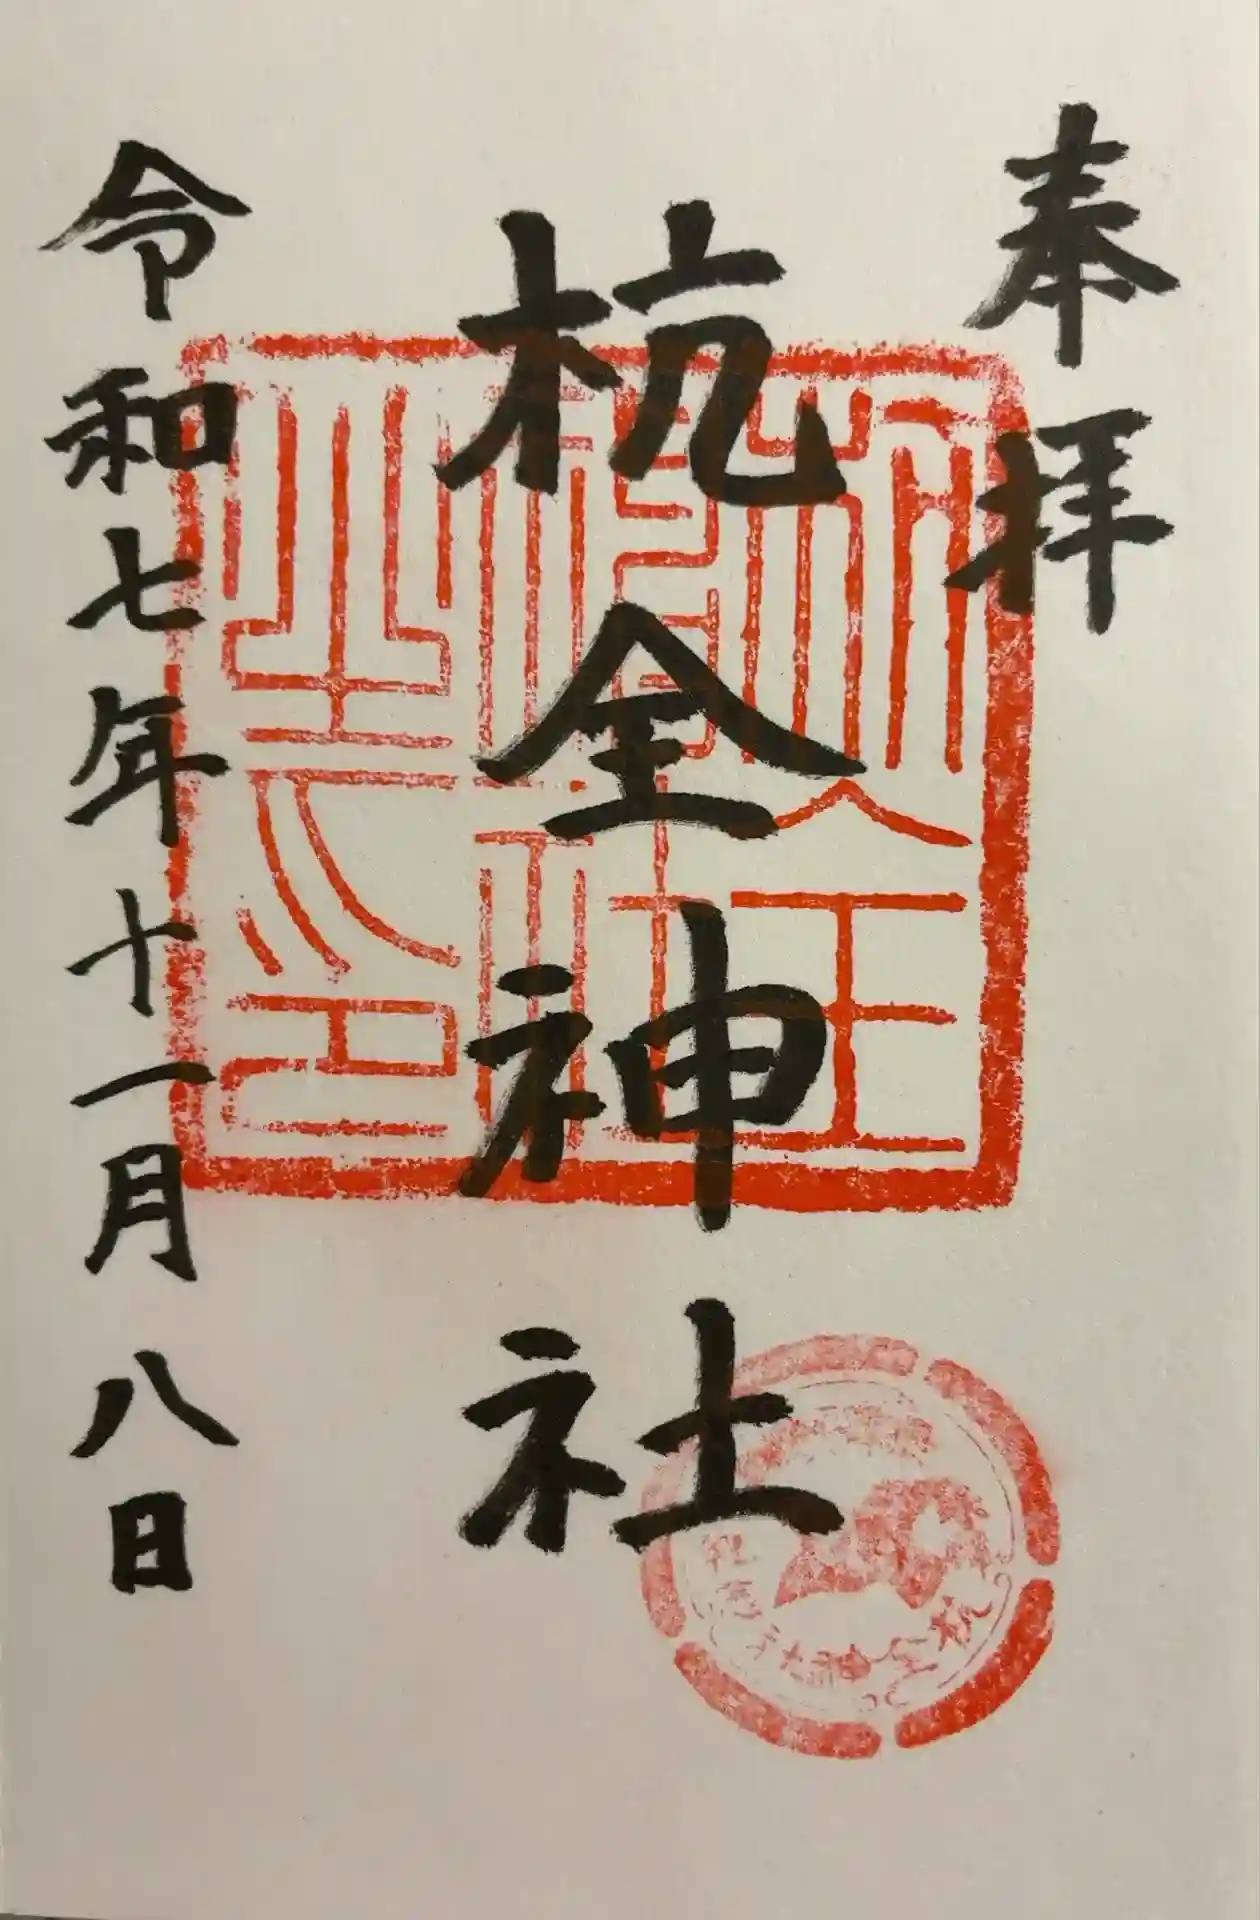 奉拝
杭全神社
令和七年十一月八日
杭全神社